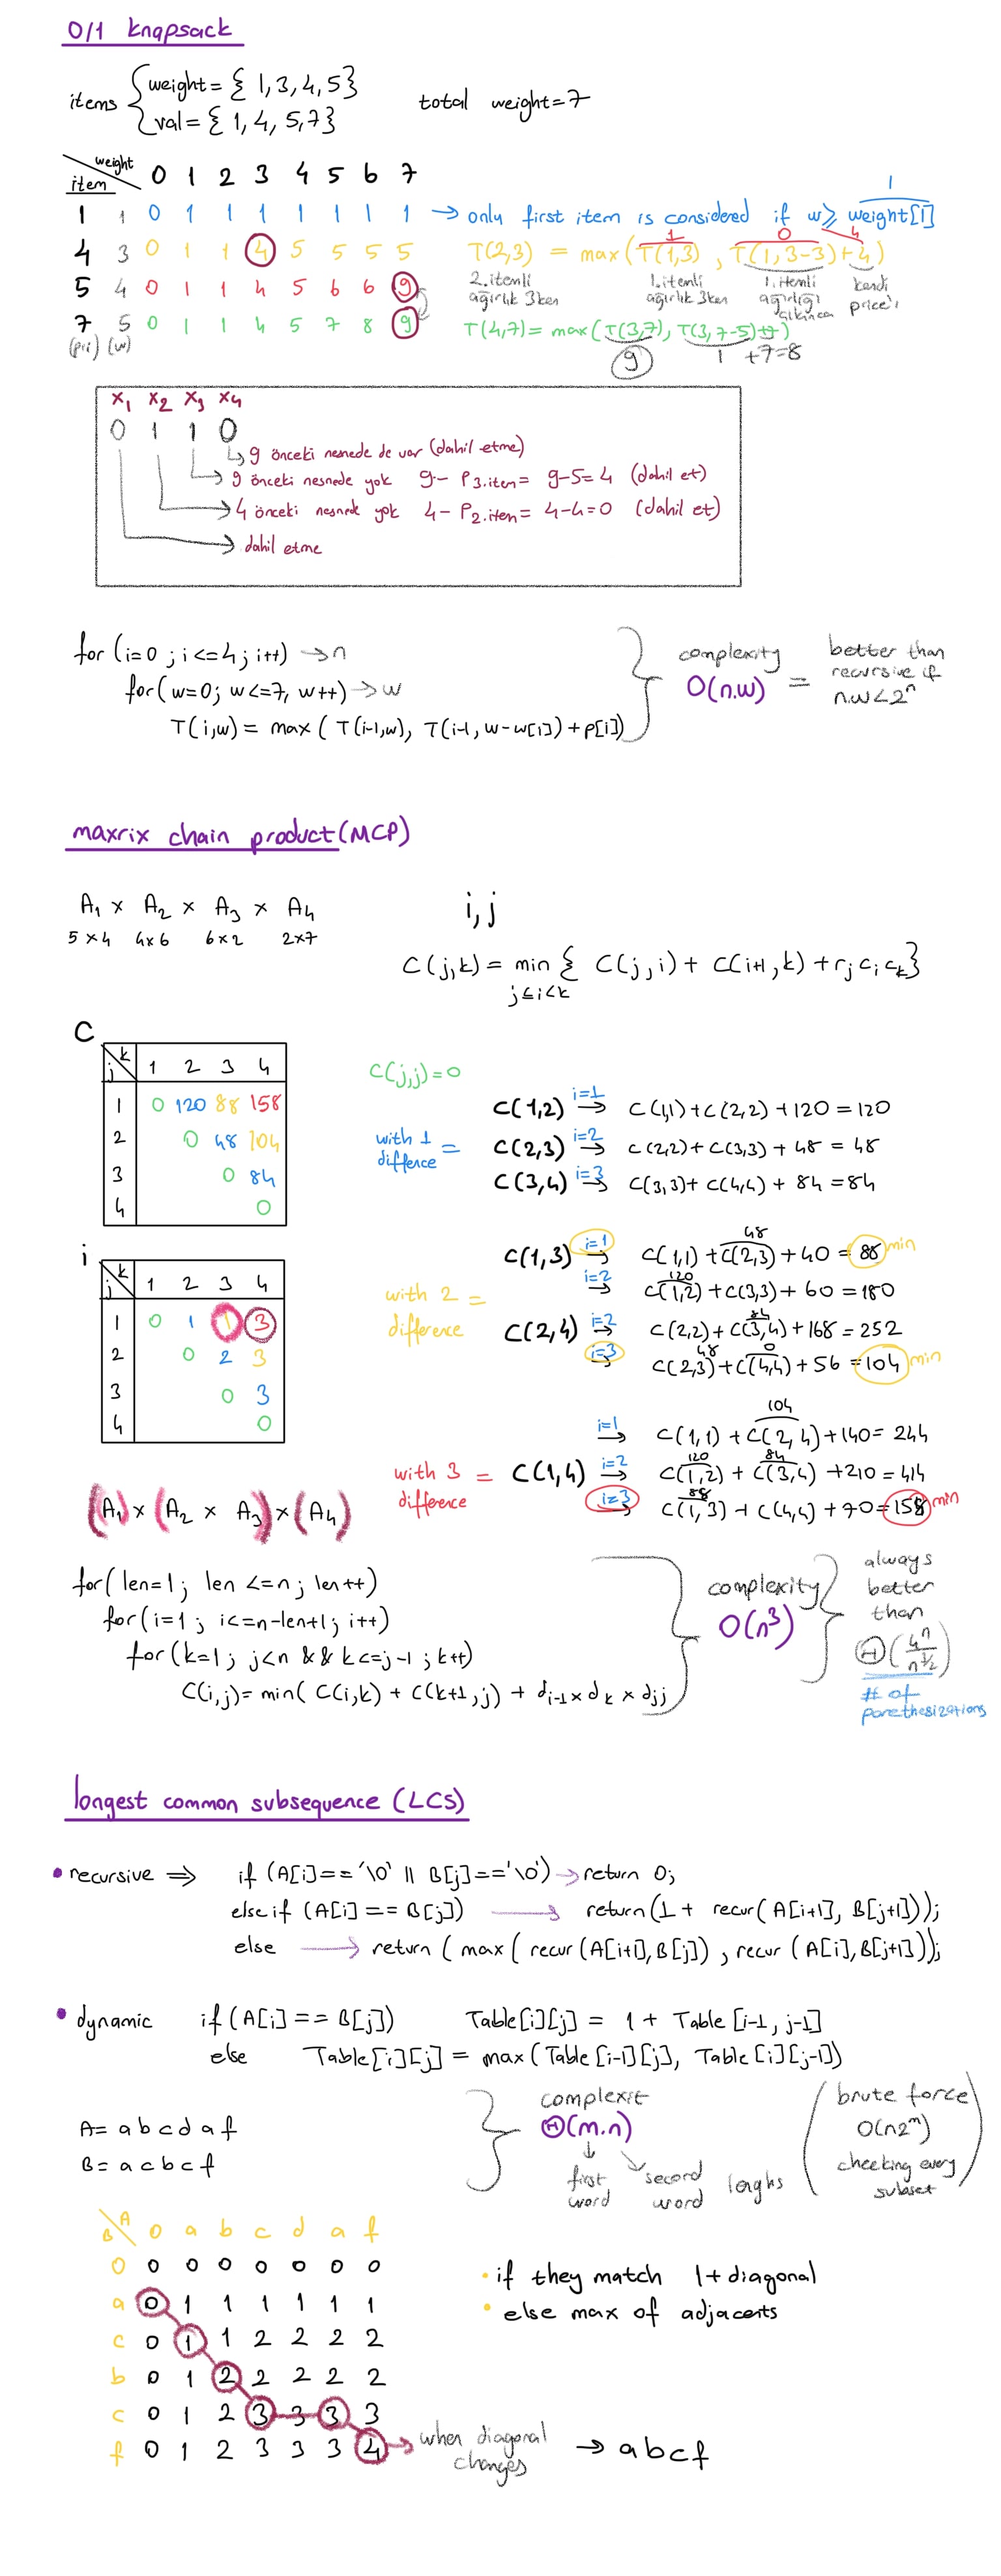 0/1 knapsack
items {weight = { 1, 3, 4, 5 }
{val = { 1, 4, 5, 7 }
total weight = 7
weight
item
0 1 2 3 4 5 6 7
1 1 0 1 1 1 1 1 1 1 → only first item is considered if w ≥ weight[i]
1
4 3 0 1 1 4 5 5 5 5
T(2,3) = max(T(1,3), T(1,3-3)+4)
1 0 4
5 4 0 1 1 4 5 6 6 9
2.itemli ağırlık 3ken
1.itemli ağırlık 3ken
1.itemli ağırlığı çıkınca
kendi price'ı
7 5 0 1 1 4 5 7 8 9
T(4,7) = max(T(3,7), T(3,7-5)+7)
(pri) (w)
9
1 +7=8
x1 x2 x3 x4
0 1 1 0
9 önceki nesnede de var (dahil etme)
9 önceki nesnede yok 9 - P3.item = 9-5=4 (dahil et)
4 önceki nesnede yok 4 - P2.item = 4-4=0 (dahil et)
dahil etme
for (i=0 ; i<=4 ; i++) → n
for (w=0; w<=7, w++) → w
T(i,w) = max ( T(i-1,w), T(i-1, w-w[i]) + p[i])
complexity
O(n.w)
=
better than
recursive if
n.w<2^n
maxrix chain product(MCP)
A1 x A2 x A3 x A4
5x4 4x6 6x2 2x7
i,j
C(j,k) = min { C(j,i) + C(i+1,k) + rj ci ck}
j≤i<k
C
k
j
1 2 3 4
1 0 120 88 158
2 0 48 104
3 0 84
4 0
C(j,j)=0
with 1 diffence =
C(1,2) i=1 → C(1,1)+C(2,2)+120=120
C(2,3) i=2 → C(2,2)+C(3,3)+48=48
C(3,4) i=3 → C(3,3)+C(4,4)+84=84
i
k
j
1 2 3 4
1 0 1 1 3
2 0 2 3
3 0 3
4 0
with 2 difference =
48
C(1,3) i=1 → C(1,1)+C(2,3)+40=88 min
120
i=2 → C(1,2)+C(3,3)+60=180
84
C(2,4) i=2 → C(2,2)+C(3,4)+168=252
48 0
i=3 C(2,3)+C(4,4)+56=104 min
with 3 difference =
104
i=1 → C(1,1)+C(2,4)+140=244
120 84
C(1,4) i=2 → C(1,2)+C(3,4)+210=414
88
i=3 → C(1,3)+C(4,4)+70=158 min
(A1) x (A2 x A3) x (A4)
for( len=1; len <=n; len++)
for(i=1 ; i<=n-len+1; i++)
for(k=1; j<n && k<=j-1 ; k++)
C(i,j)= min( C(i,k) + C(k+1,j) + di-1 x dk x djj
complexity
O(n^3)
always
better
than
Θ(4^n / n^3/2)
# of
parethesizations
longest common subsequence (LCS)
• recursive ⇒ if (A[i]=='\0' || B[j]=='\0') → return 0;
else if (A[i] == B[j]) → return(1 + recur( A[i+1], B[j+1]));
else → return ( max ( recur (A[i+1], B[j]) , recur (A[i], B[j+1]));
• dynamic if (A[i] == B[j]) Table[i][j] = 1 + Table [i-1, j-1]
else Table[i][j] = max(Table [i-1][j], Table [i][j-1])
A= a b c d a f
B= a c b c f
complexit
Θ(m.n)
first word
second word
lenghs
(brute force
O(n2^m)
checking every
subset)
A
B
0 a b c d a f
0 0 0 0 0 0 0 0
a 0 1 1 1 1 1 1
c 0 1 1 2 2 2 2
b 0 1 2 2 2 2 2
c 0 1 2 3 3 3 3
f 0 1 2 3 3 3 4
• if they match 1+diagonal
• else max of adjacents
→ when diagonal changes → abcf